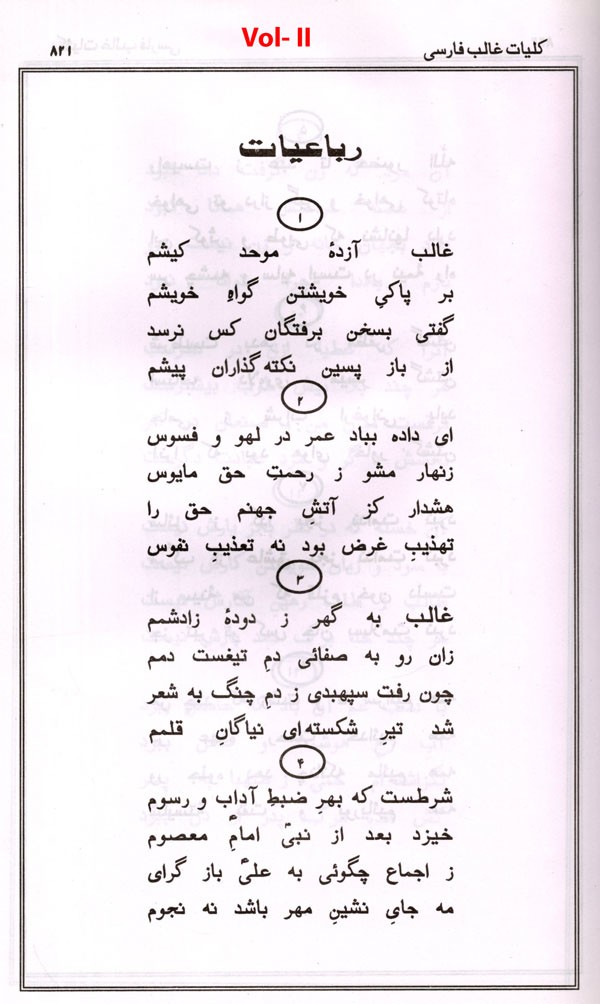 Vol- II
کلیات غالب فارسی
۸۲۱
رباعیات
۱
غالب آزدۂ موحد کیشم
بر پاکیِ خویشتن گواہِ خویشم
گفتی بسخن برفتگان کس نرسد
از باز پسین نکتہ گذاران پیشم
۲
ای دادہ بباد عمر در لهو و فسوس
زنهار مشو ز رحمتِ حق مایوس
هشدار کز آتشِ جهنم حق را
تهذیبِ غرض بود نه تعذیبِ نفوس
۳
غالب به گهر ز دودۂ زادشمم
زان رو به صفائی دمِ تیغست دمم
چون رفت سپهبدی ز دمِ چنگ به شعر
شد تیرِ شکسته ای نیاگانِ قلمم
۴
شرطست که بهرِ ضبطِ آداب و رسوم
خیزد بعد از نبیؐ امامِ معصوم
ز اجماع چگوئی به علیؑ باز گرای
مه جایِ نشینِ مهر باشد نه نجوم